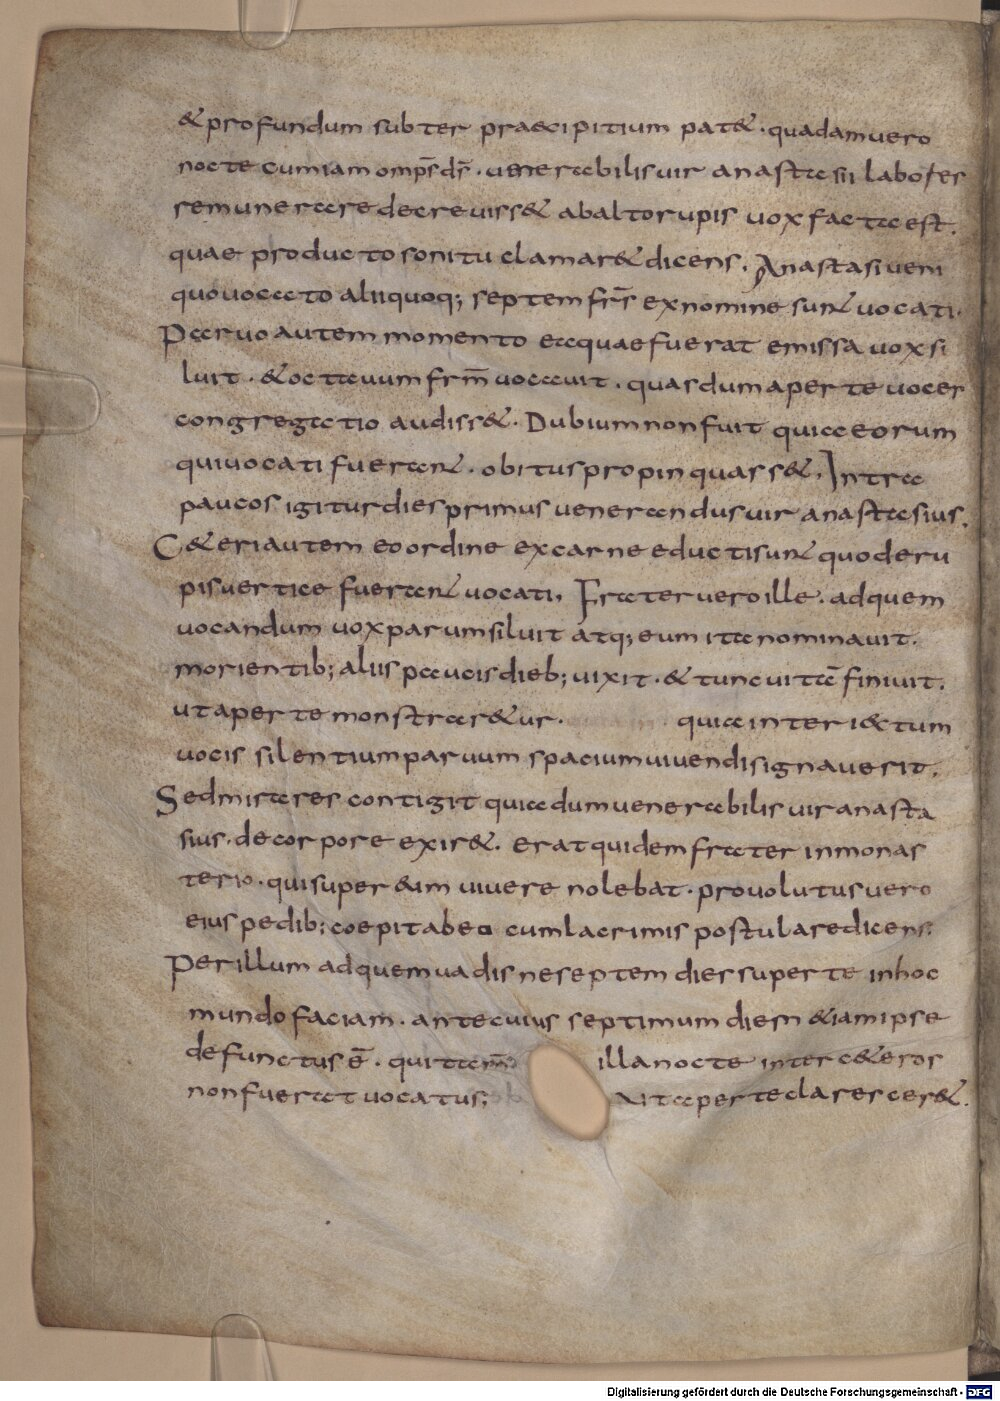 & profundum subter praecipitium pat&. quadam uero
nocte cum iam omp̄s d̄s. uenerabilis uir anastasii labores
remunerare decreuiss& ab alto rupis uox facta est.
quae producto sonitu clamar& dicens. Anastasi ueni
quo uocato alii quoq; septem fr̄s ex nomine sunt uocati.
Paruo autem momento ea quae fuerat emissa uox si
luit. & octauum frm̄ uocauit. quas dum aperte uoces
congregatio audiss&. Dubium non fuit quia eorum
qui uocati fuerant. obitus propinquass&. Intra
paucos igitur dies primus uenerandus uir anastasius.
C&eri autem eo ordine ex carne educti sunt quo de ru
pis uertice fuerant uocati. Frater uero ille. ad quem
uocandum uox parum siluit atq; eum ita nominauit.
morientib; aliis paucis dieb; uixit. & tunc uitā finiuit.
ut aperte monstrar&ur. quia interiectum
uocis silentium paruum spacium uiuendi signauerit.
Sed mira res contigit quia dum uenerabilis uir anasta
sius. de corpore exir&. erat quidem frater in monas
terio. qui super &im uiuere nolebat. prouolutus uero
eius pedib; coepit ab eo cum lacrimis postulare dicens.
Per illum ad quem uadis ne septem dies super te in hoc
mundo faciam. ante cuius septimum diem &iam ipse
defunctus ē. qui tam̄ illa nocte inter c&eros
non fuerat uocatus; ut aperte claresceret.